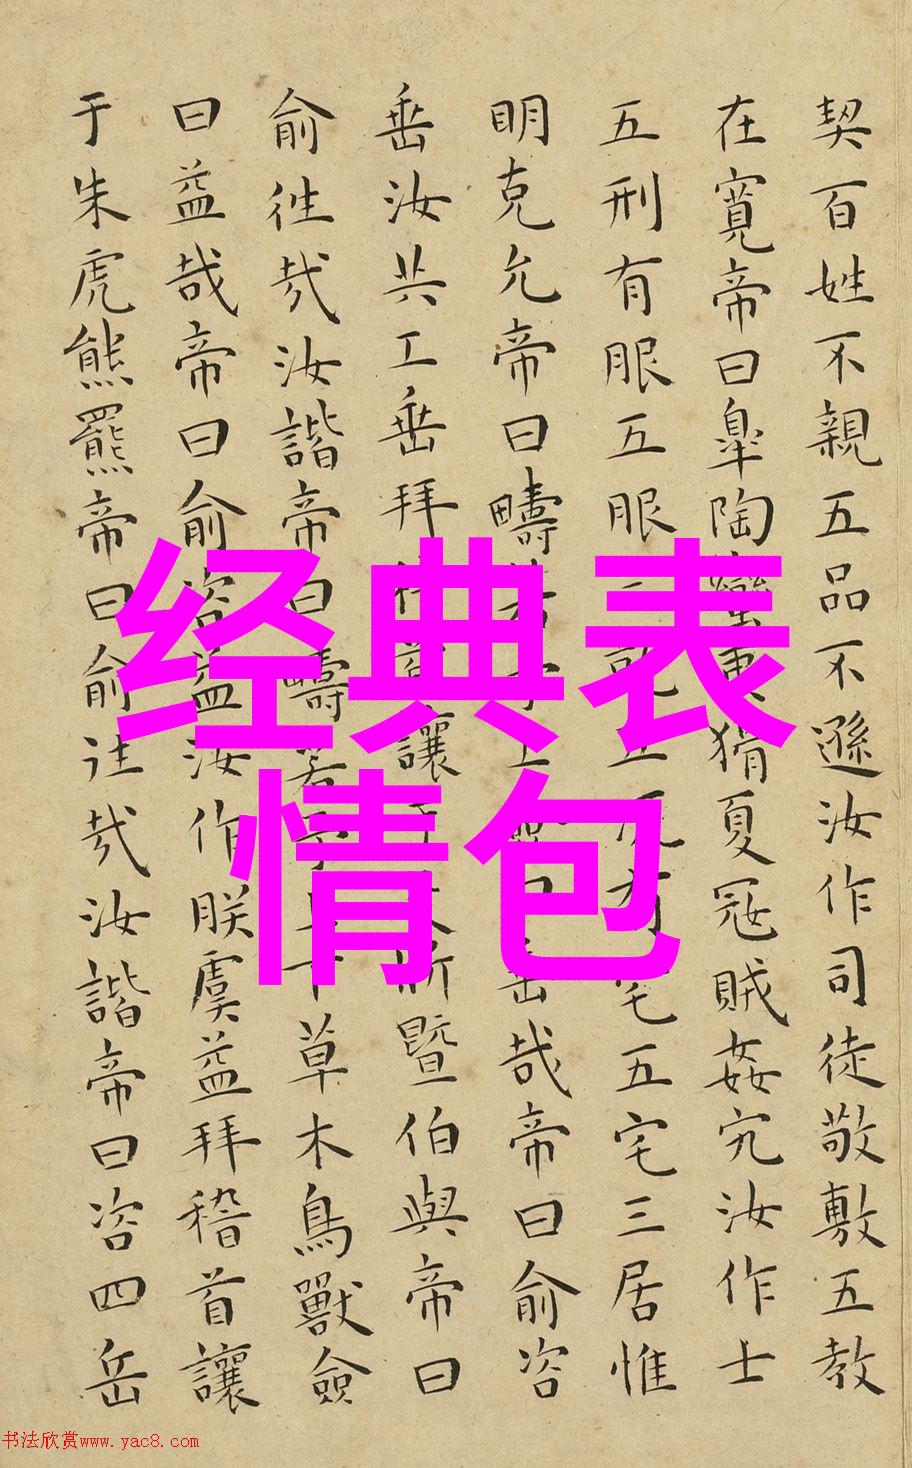 契百姓不親五品不遜汝作司徒敬敷五教
在寬帝曰臯陶蠻夷猾夏冦賊姦宄汝作士
五刑有服五服三就五流有宅五宅三居惟
明克允帝曰疇若予工僉曰垂哉帝曰俞咨
垂汝共工垂拜稽首讓于殳斨暨伯與帝曰
俞徃哉汝諧帝曰疇若予上下草木鳥獸僉
曰益哉帝曰俞咨益汝作朕虞益拜稽首讓
于朱虎熊羆帝曰俞往哉汝諧帝曰咨四岳
经典表
情包
书法欣赏www.yac8.com